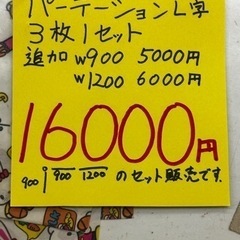 パーテーションL字
3枚1セット
追加 W900 5000円
W1200 6000円
16000円
900 900 1200 のセット販売です.